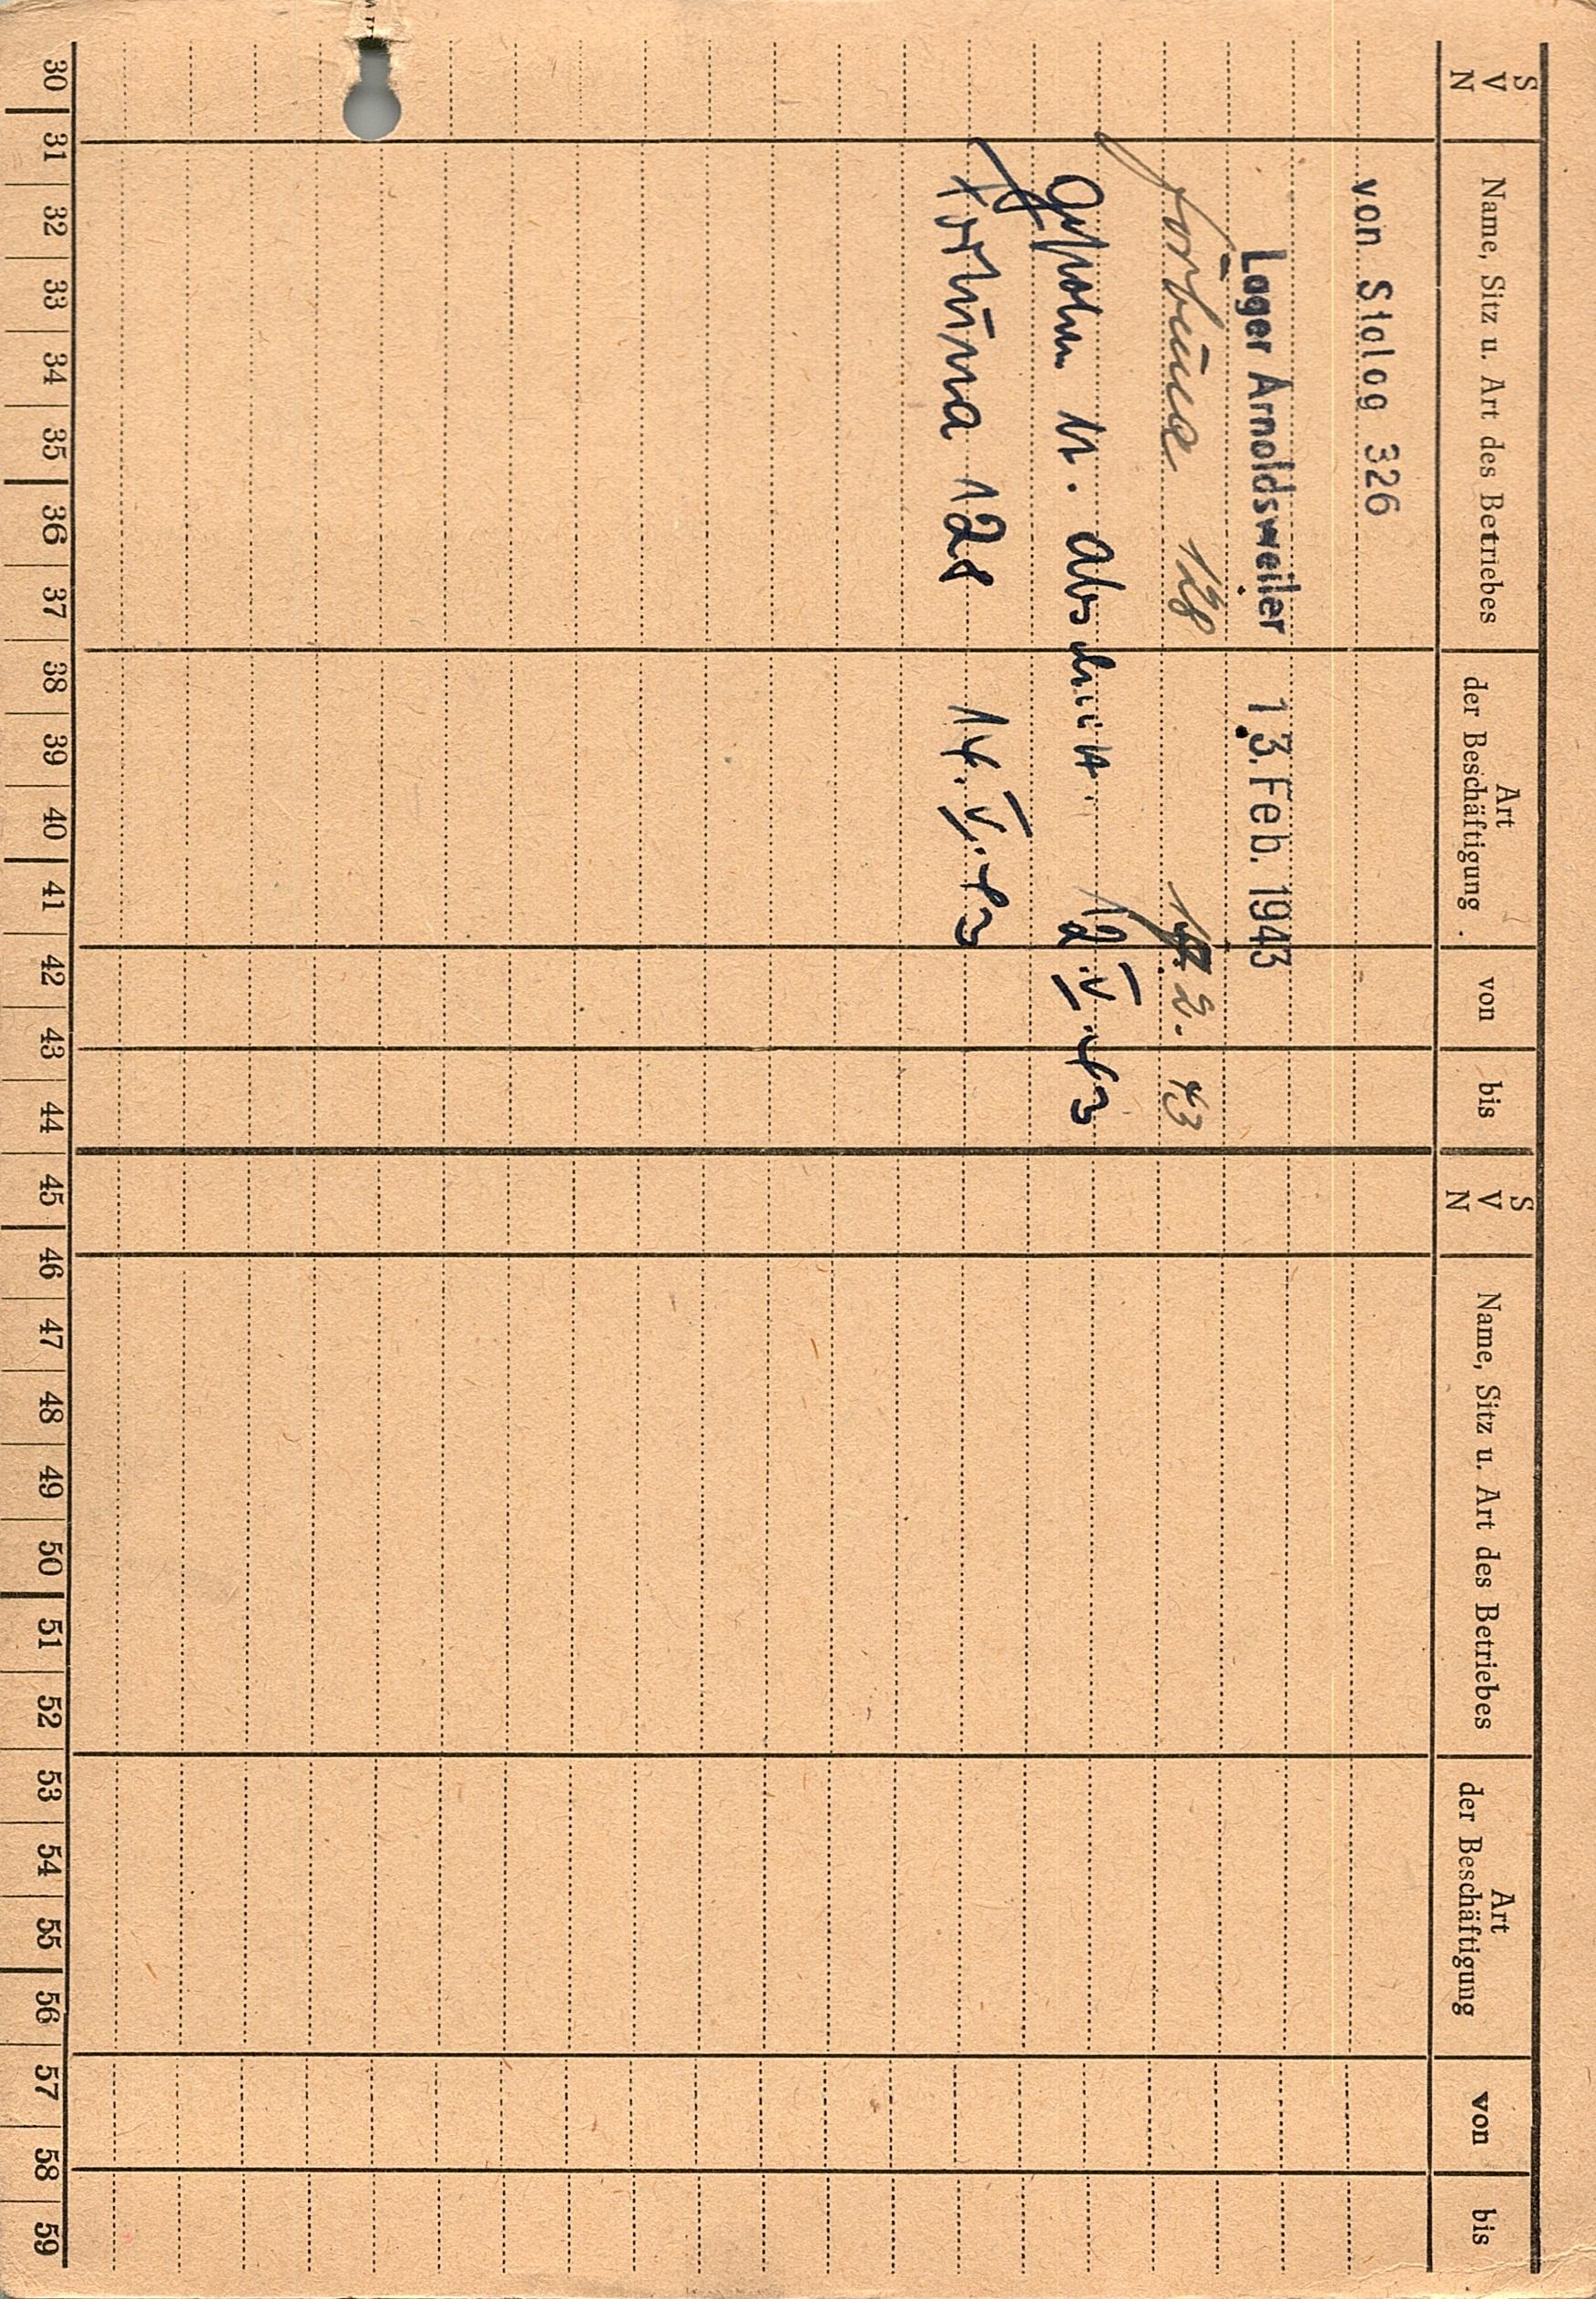 S V N Name, Sitz u. Art des Betriebes Art der Beschäftigung von bis S V N Name, Sitz u. Art des Betriebes Art der Beschäftigung von bis
von Stalag 326
Lager Arnoldsweiler 13. Feb. 1943
Fortuna 128 2. 43
u. 12.V.43
Fortuna 128 14.V.43
30 31 32 33 34 35 36 37 38 39 40 41 42 43 44 45 46 47 48 49 50 51 52 53 54 55 56 57 58 59